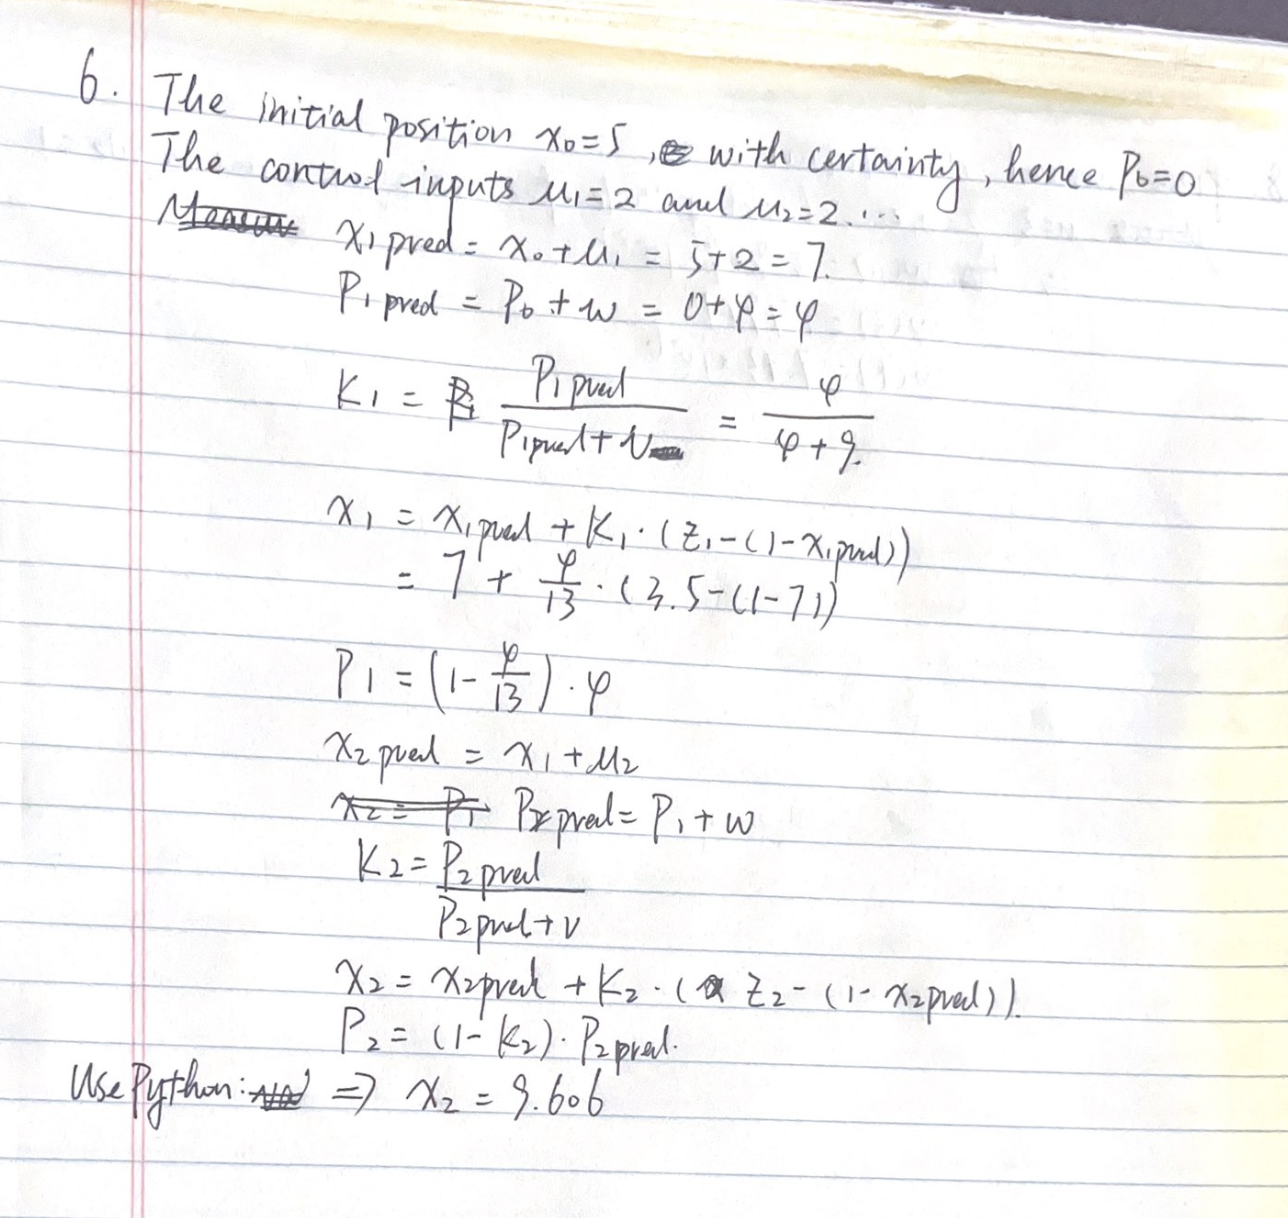 6. The initial position x₀=5, with certainty, hence P₀=0
The control inputs u₁=2 and u₂=2...
x₁pred = x₀+u₁ = 5+2 = 7.
P₁pred = P₀+w = 0+4 = 4
K₁ = P₁pred / (P₁pred+v) = 4 / (4+9).
x₁ = x₁pred + K₁·(z₁-(1-x₁pred))
= 7 + 4/13·(3.5-(1-7))
P₁ = (1-4/13)·4
x₂pred = x₁+u₂
P₂pred = P₁+w
K₂ = P₂pred / (P₂pred+v)
x₂ = x₂pred + K₂·(z₂-(1-x₂pred)).
P₂ = (1-K₂)·P₂pred.
Use Python: ⇒ x₂ = 9.606